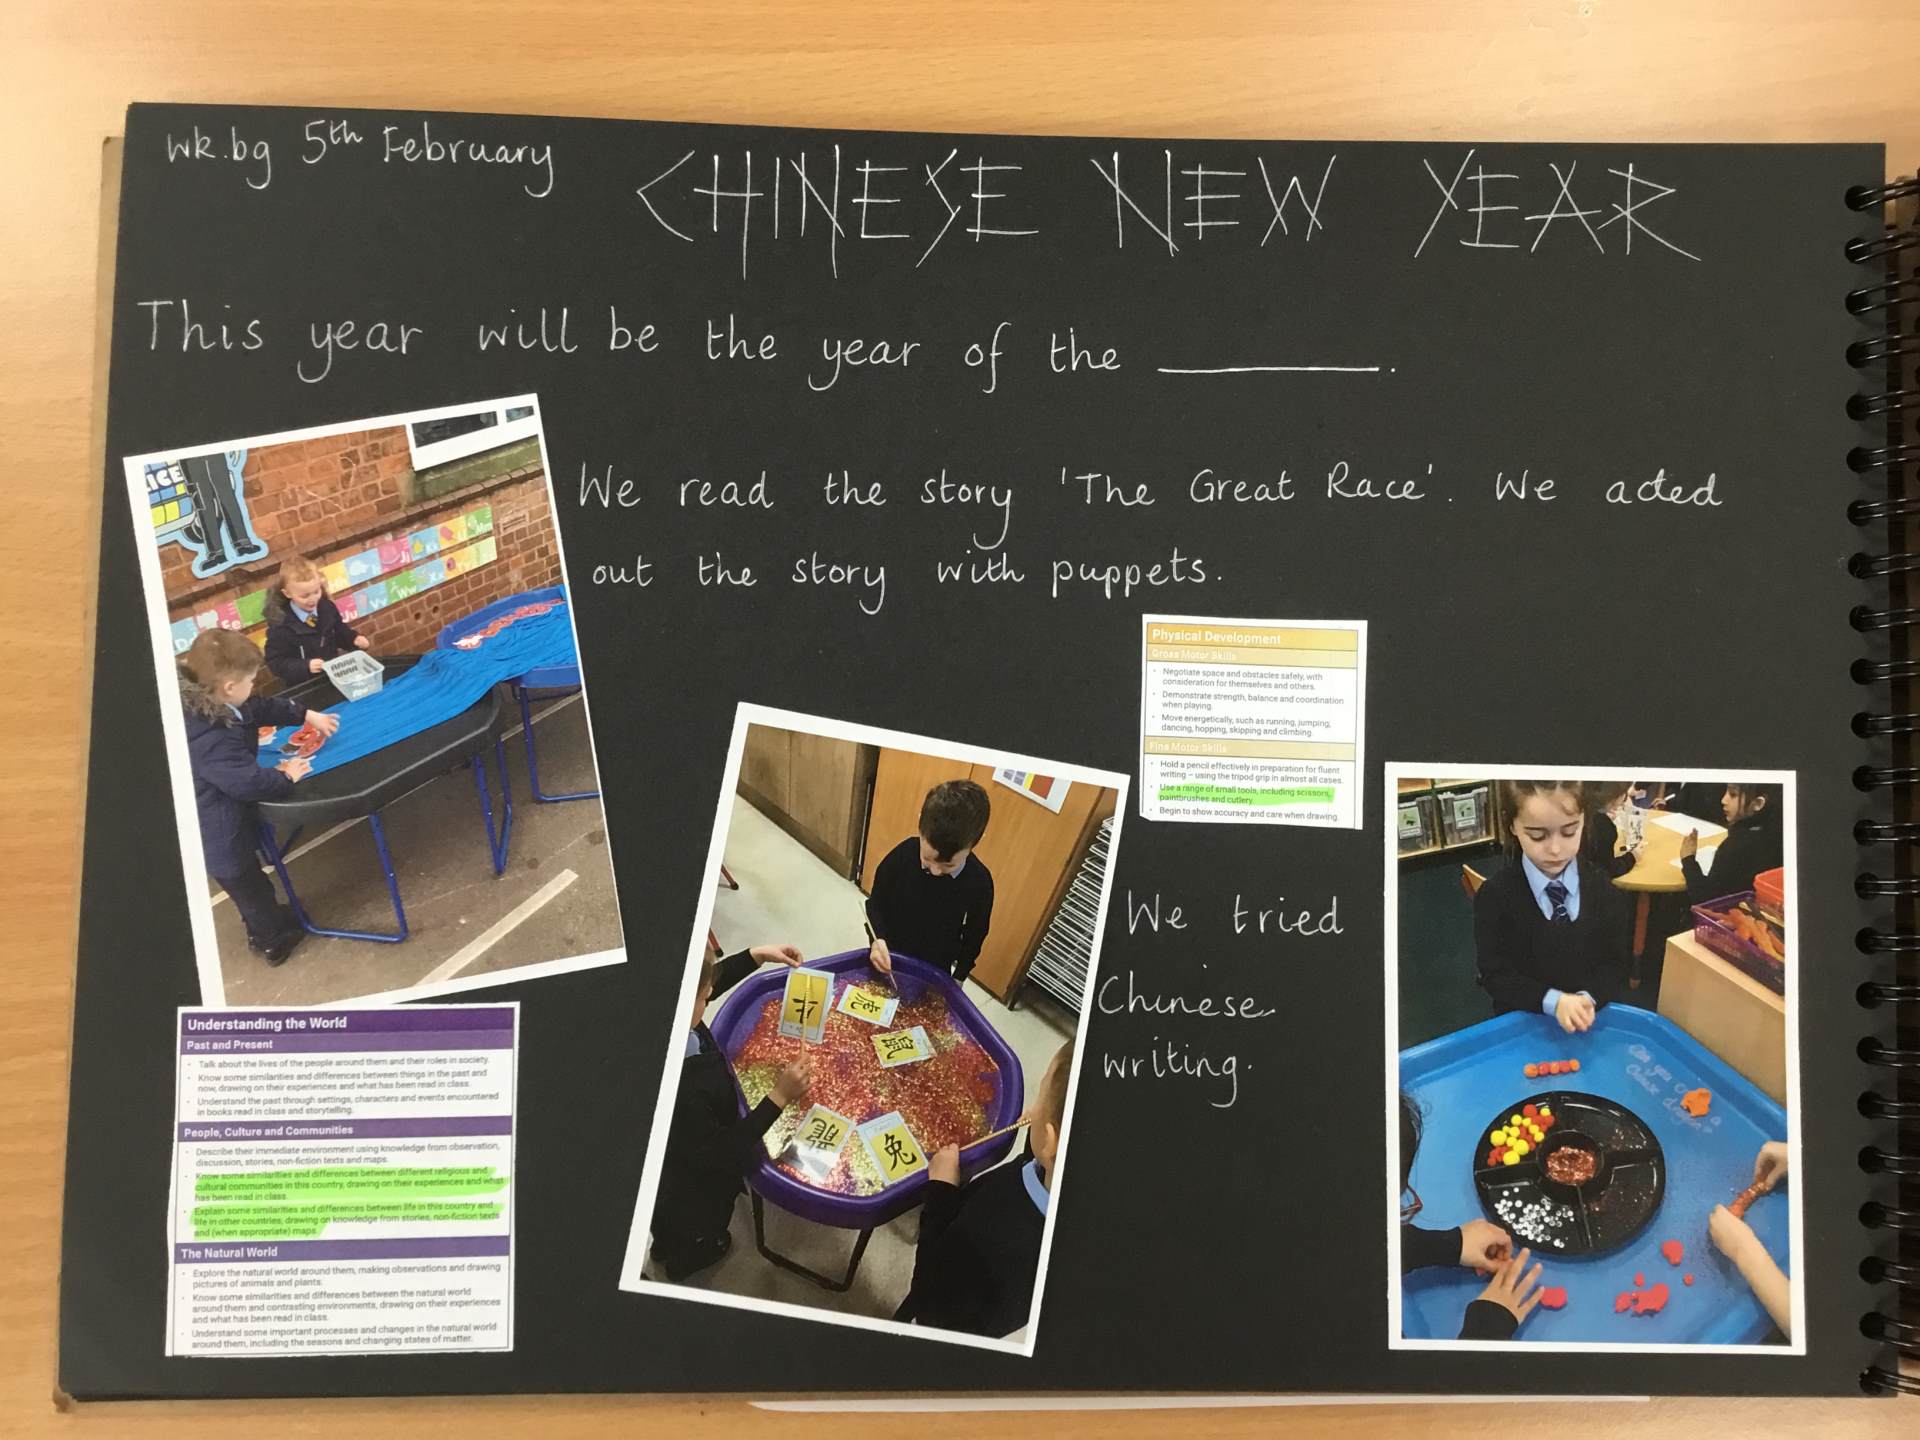 wk.bg 5th February
CHINESE NEW YEAR
This year will be the year of the ________.
We read the story 'The Great Race'. We acted
out the story with puppets.
Physical Development
Gross Motor Skills
• Negotiate space and obstacles safely, with
consideration for themselves and others.
• Demonstrate strength, balance and coordination
when playing.
• Move energetically, such as running, jumping,
dancing, hopping, skipping and climbing.
Fine Motor Skills
• Hold a pencil effectively in preparation for fluent
writing – using the tripod grip in almost all cases.
• Use a range of small tools, including scissors,
paintbrushes and cutlery.
• Begin to show accuracy and care when drawing.
We tried
Chinese
writing.
Understanding the World
Past and Present
• Talk about the lives of the people around them and their roles in society.
• Know some similarities and differences between things in the past and
now, drawing on their experiences and what has been read in class.
• Understand the past through settings, characters and events encountered
in books read in class and storytelling.
People, Culture and Communities
• Describe their immediate environment using knowledge from observation,
discussion, stories, non-fiction texts and maps.
• Know some similarities and differences between different religious and
cultural communities in this country, drawing on their experiences and what
has been read in class.
• Explain some similarities and differences between life in this country and
life in other countries, drawing on knowledge from stories, non-fiction texts
and (when appropriate) maps.
The Natural World
• Explore the natural world around them, making observations and drawing
pictures of animals and plants.
• Know some similarities and differences between the natural world
around them and contrasting environments, drawing on their experiences
and what has been read in class.
• Understand some important processes and changes in the natural world
around them, including the seasons and changing states of matter.
ICE
兔
Can you
a
Chinese dragon?